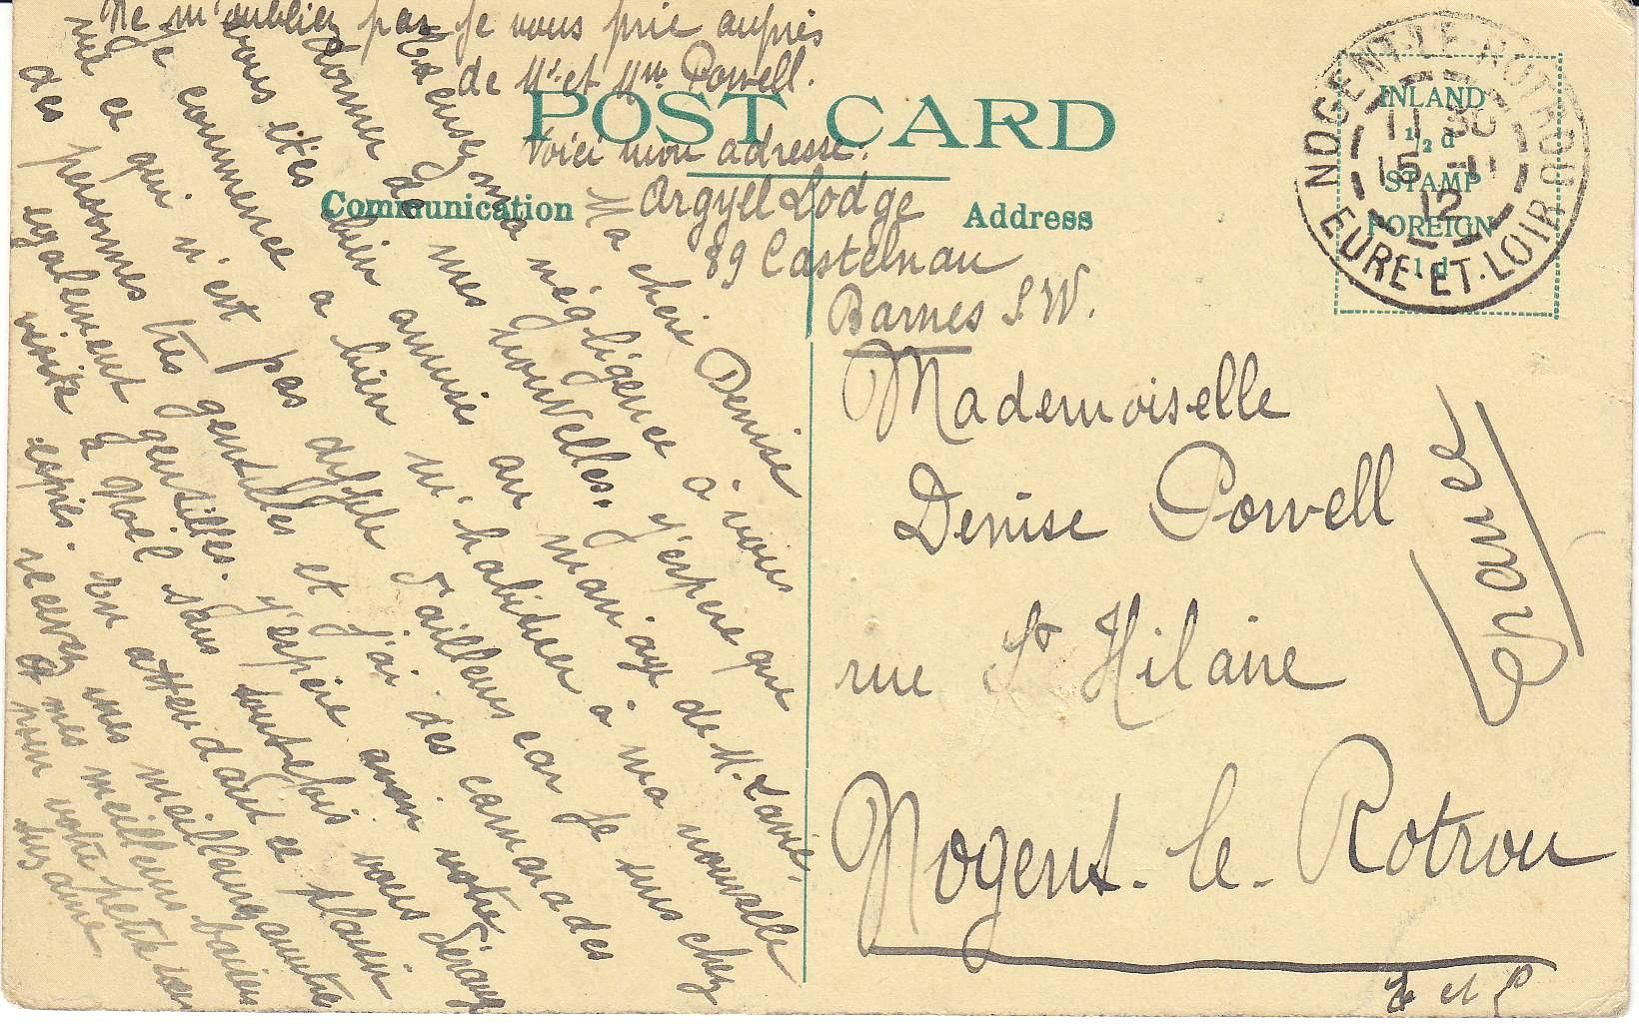 Ne m'oubliez pas je vous prie auprès
de Mr et Mme Powell.
POST CARD
Voici mon adresse:
Argyll Lodge
89 Castelnau
Barnes S.W.
Communication
Address
Ma chère Denise
Excusez ma négligence à vous
donner de mes nouvelles. j'espère que
vous êtes bien amusée au mariage de M. Lavie.
Je commence a bien m'habituer à ma nouvelle
vie ce qui n'est pas difficile d'ailleurs car je suis chez
des personnes très gentilles et j'ai des camarades
également gentilles. j'espère avoir votre
visite à Noël sans toutefois vous déranger
exprès. En attendant ce plaisir
recevez mes meilleures amitiés
et mes meilleurs baisers
pour votre petite sœur
Suzanne
Mademoiselle
Denise Powell
rue St Hilaire
Nogent-le-Rotrou
E et L
France
INLAND
½d
STAMP
FOREIGN
1d
NOGENT-LE-ROTROU
11 30
15 -11
12
EURE-ET-LOIR